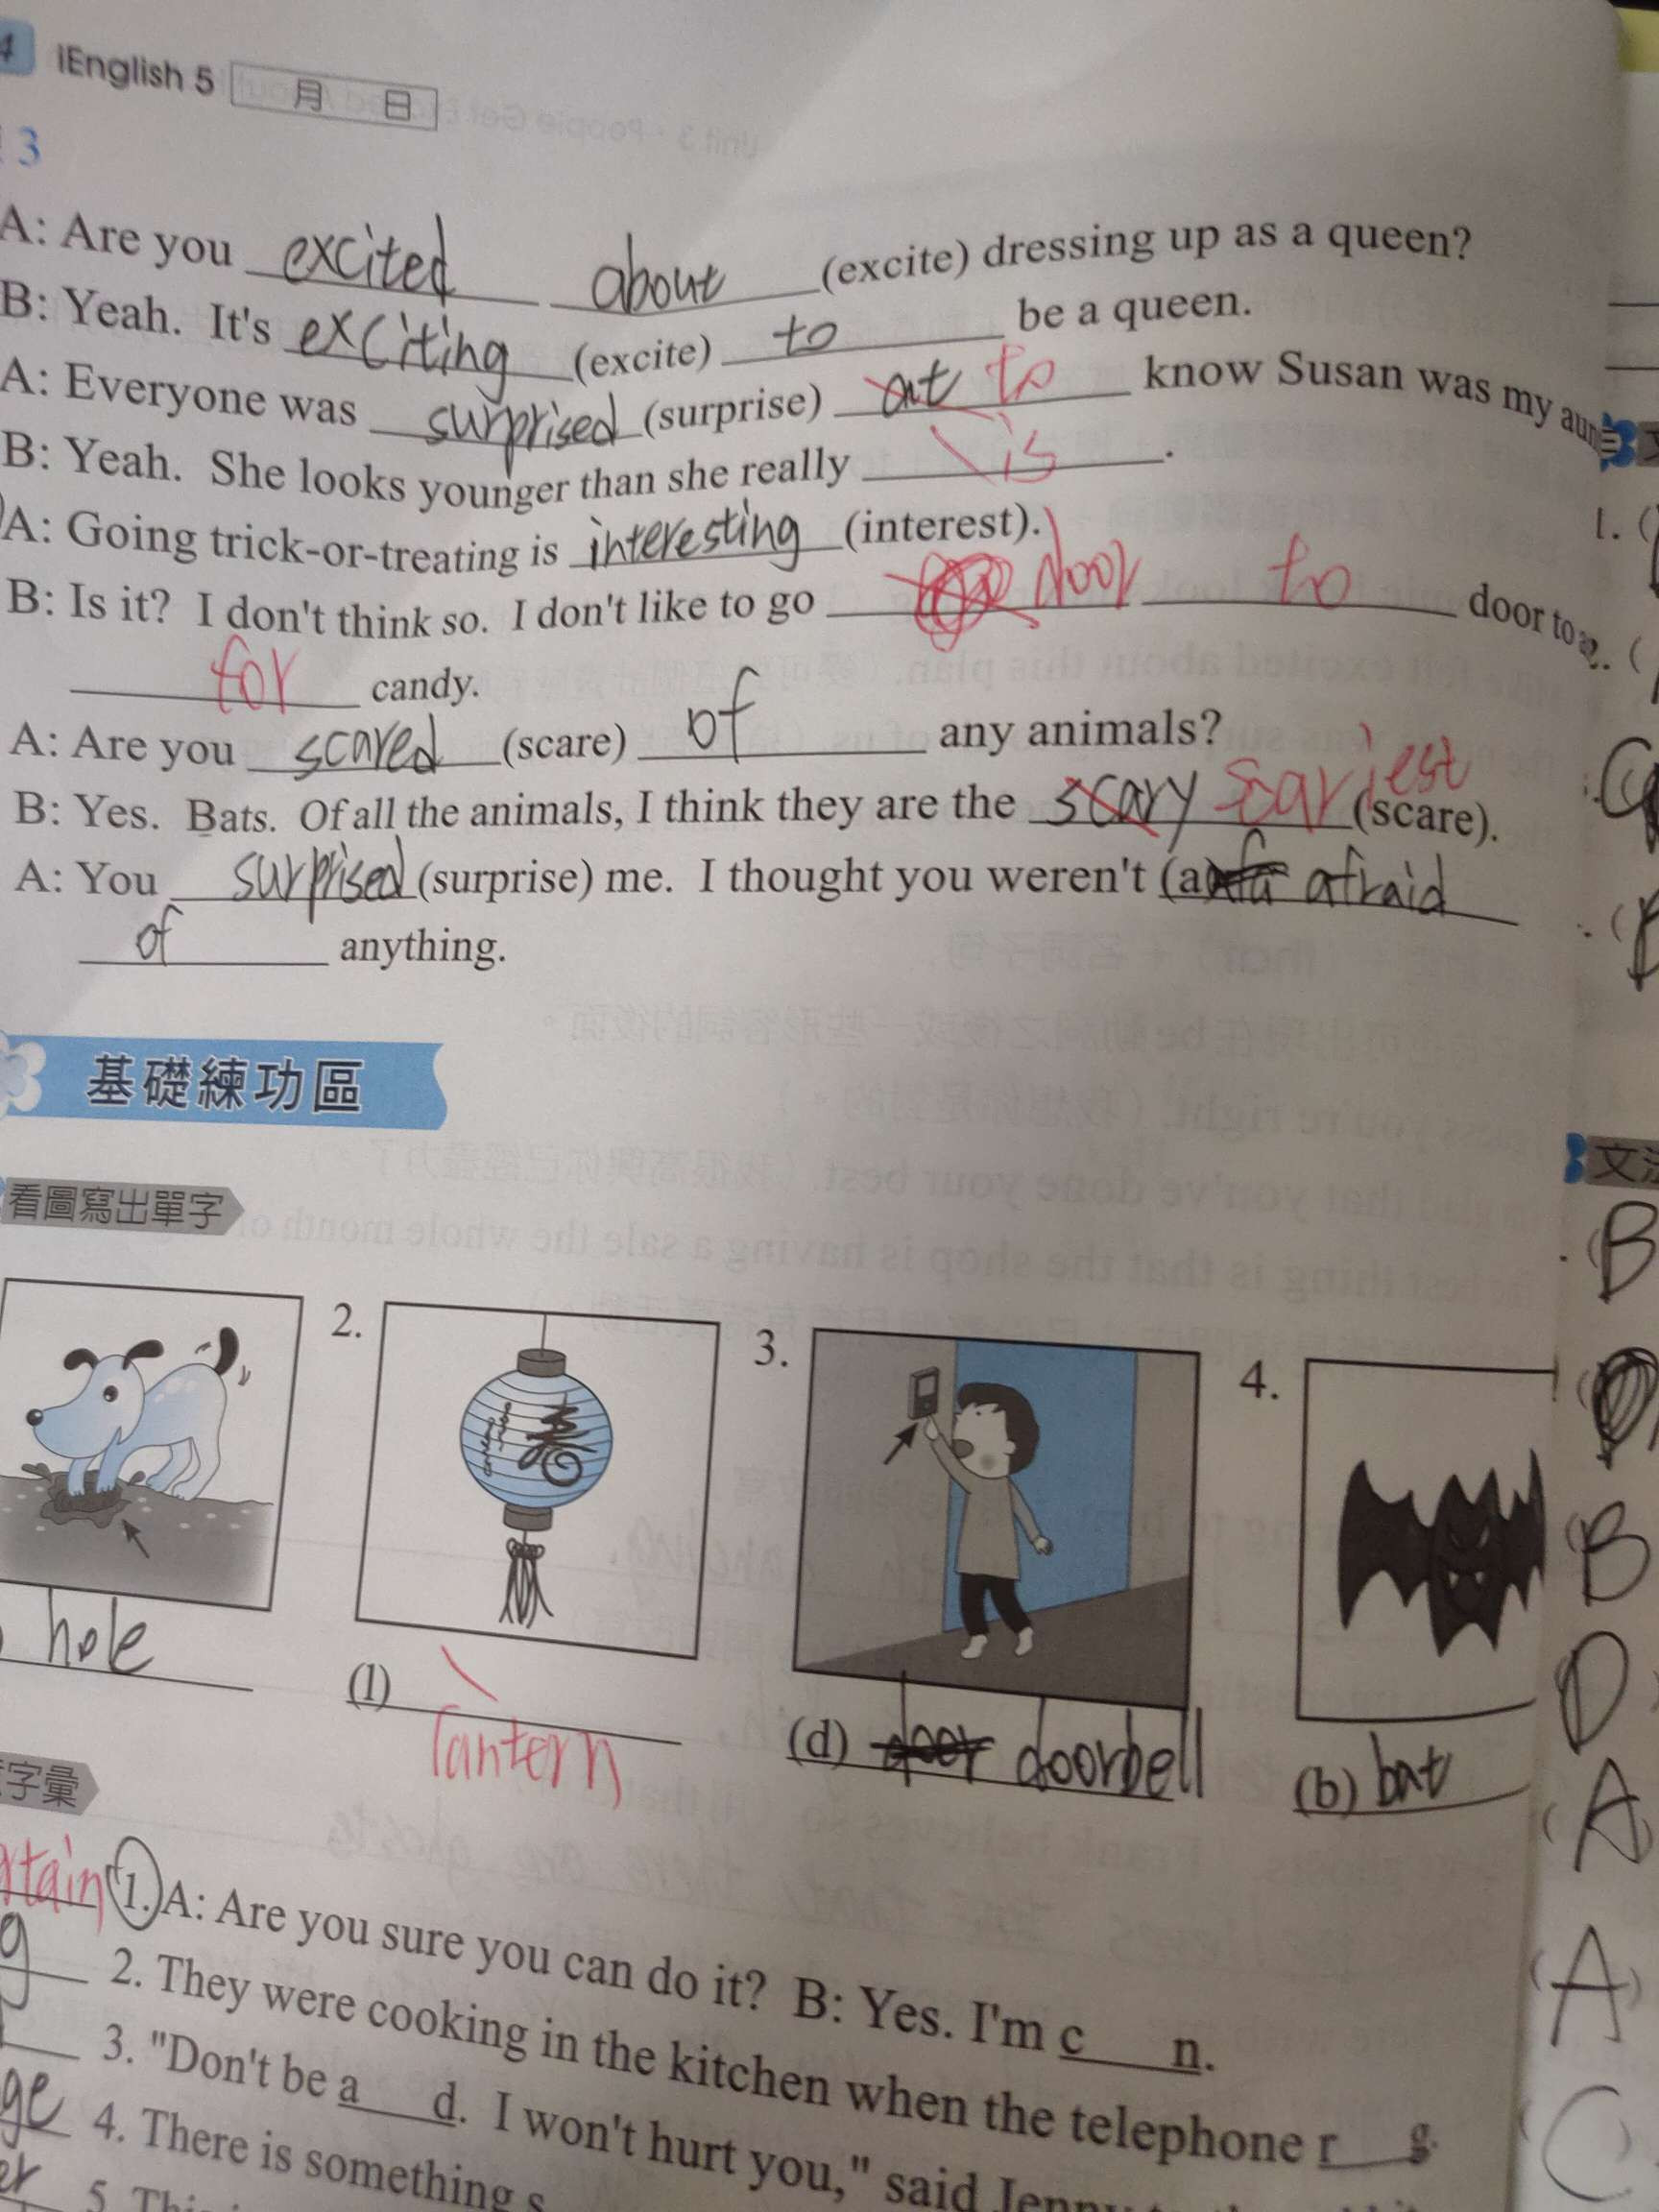 4 iEnglish 5 月 日
3
A: Are you excited about (excite) dressing up as a queen?
B: Yeah. It's exciting (excite) to be a queen.
A: Everyone was surprised (surprise) at to know Susan was my
B: Yeah. She looks younger than she really is.
A: Going trick-or-treating is interesting (interest).
B: Is it? I don't think so. I don't like to go door to door to
for candy.
A: Are you scared (scare) of any animals?
B: Yes. Bats. Of all the animals, I think they are the scary scariest (scare).
A: You surprised (surprise) me. I thought you weren't (a) afraid
of anything.
基礎練功區
看圖寫出單字
2. 3. 4.
hole (l) lantern (d) door doorbell (b) bat
字彙
1. A: Are you sure you can do it? B: Yes. I'm c___n.
2. They were cooking in the kitchen when the telephone r___g.
3. "Don't be a___d. I won't hurt you," said
4. There is something s
5.
1. (
文
B
B
D
A
A
C